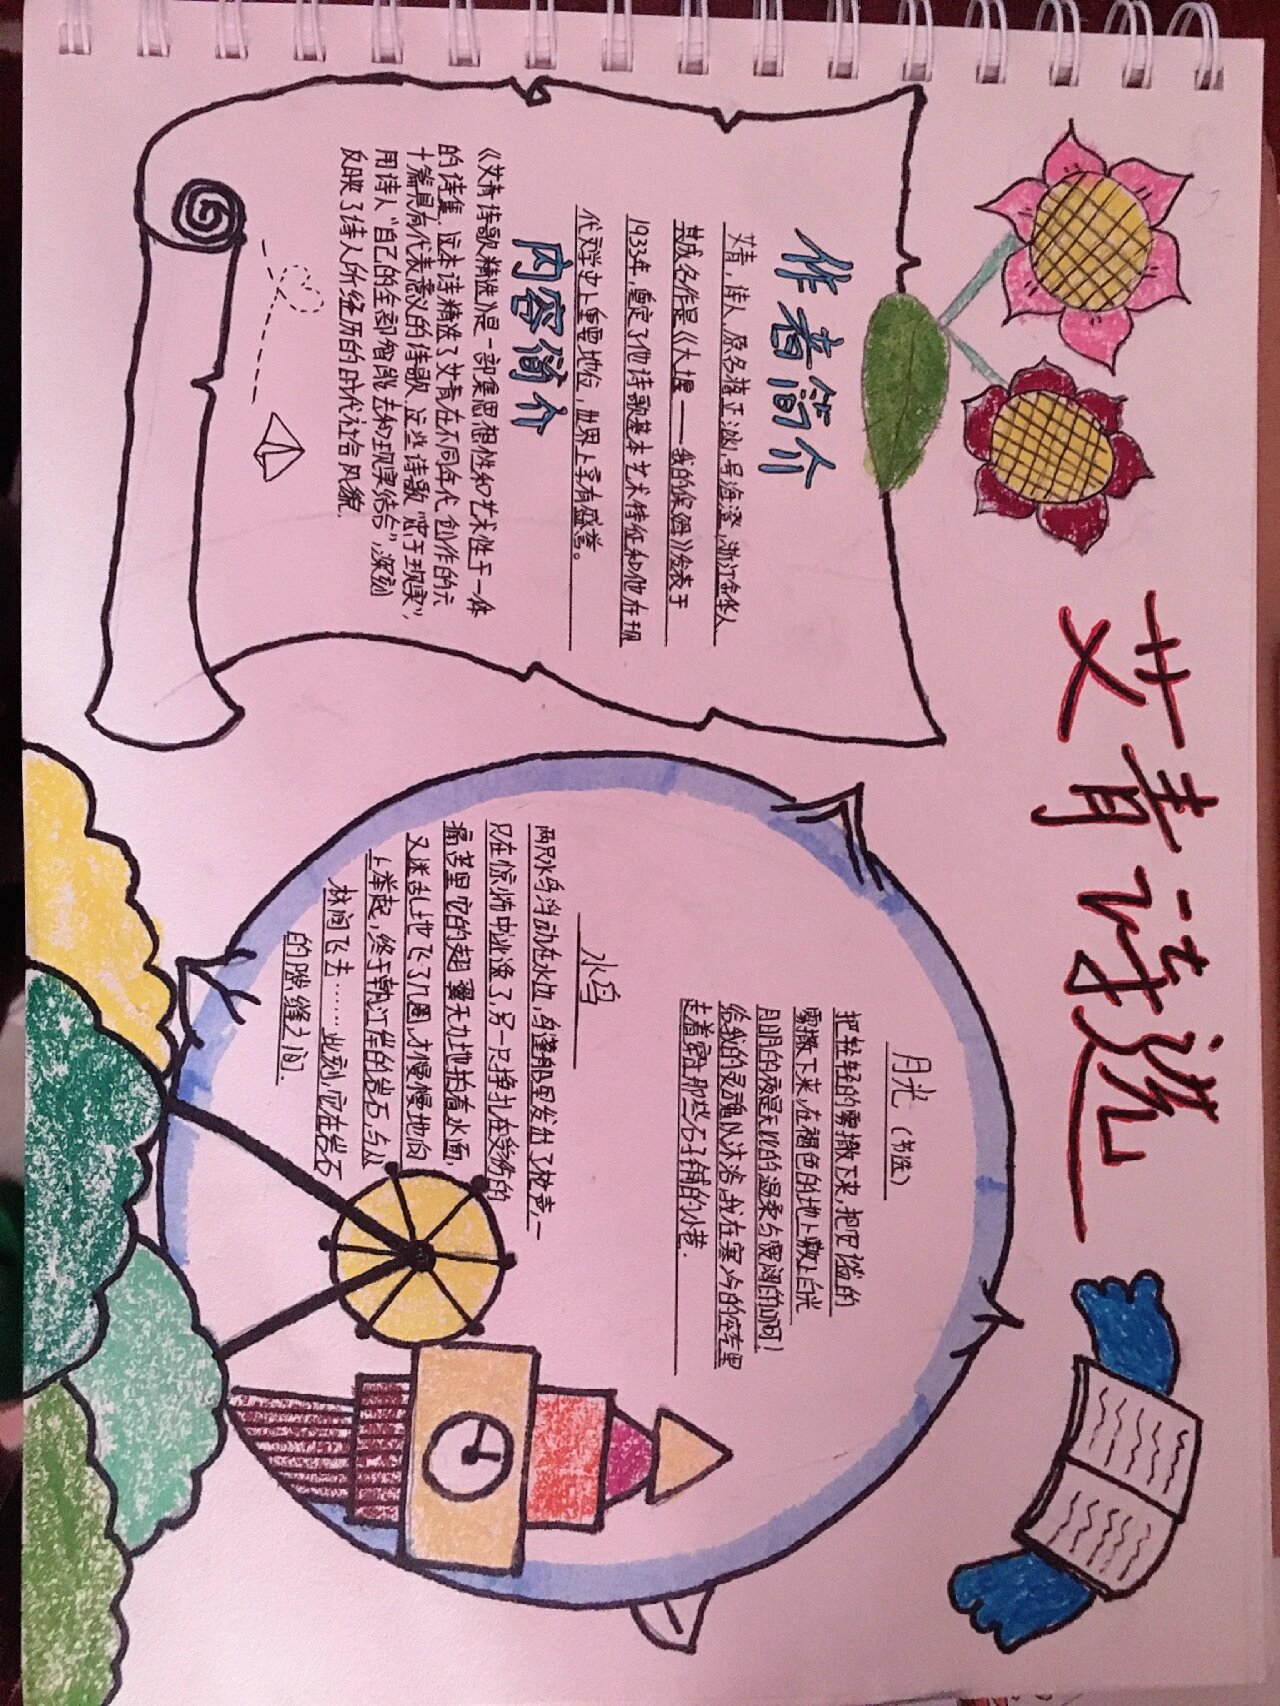 艾青诗选
作者简介
艾青,诗人,原名蒋正涵,号海澄,浙江金华人
其成名作是《大堰——我的保姆》发表于
1933年,奠定了他诗歌基本艺术特征和他在现
代文学史上重要地位,世界上享有盛誉。
内容简介
《艾青诗歌精选》是一部集思想性和艺术性于一体
的诗集,这本诗精选了艾青在不同年代创作的六
十篇具有代表意义的诗歌,这些诗歌“忠于现实”,
用诗人“自己的全部智能去和现实结合”,深刻
反映了诗人所经历的时代社会风貌.
月光(节选)
把轻轻的雾撒下来,把安谧的
雾撒下来,在褐色的地上敷上白光
月明的夜是无比的温柔与宽阔的啊!
给我的灵魂以沐浴,我在寒冷的空气里
走着穿过那些石子铺的小巷.
水鸟
两只水鸟浮动在水边,乌篷船里发出了枪声,一
只在惊怖中逃逸了,另一只挣扎在受伤的
痛苦里它的翅翼无力地拍着水面,
又迷乱地飞了几圈,才慢慢地向
上举起,终于朝江岸的岩石,与丛
林间飞去……此刻,它在岩石
的隙缝之间.